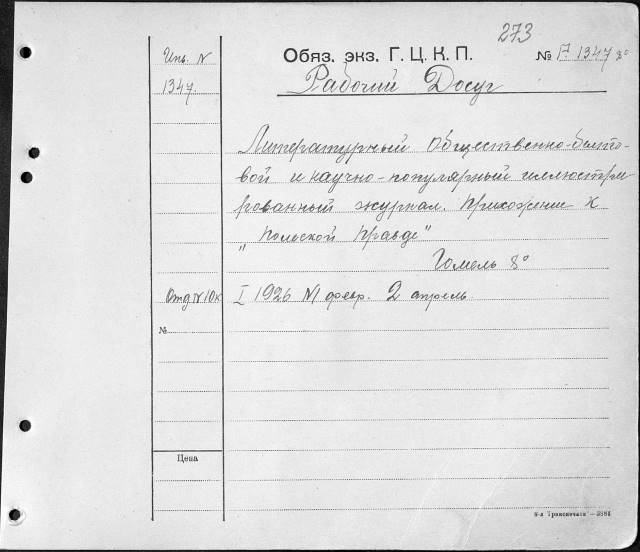 273
Обяз. экз. Г. Ц. К. П.
№ П 1347 8°
Рабочий Досуг
Инв. N
1347.
Литературный общественно-быто-
вой и научно-популярный иллюстри
рованный журнал. Приложение к
„Польской Правде"
Гомель 8°
Отд N 10к
I 1926 N1 февр. 2 апрель
№
Цена
8-я Транспечати —3881